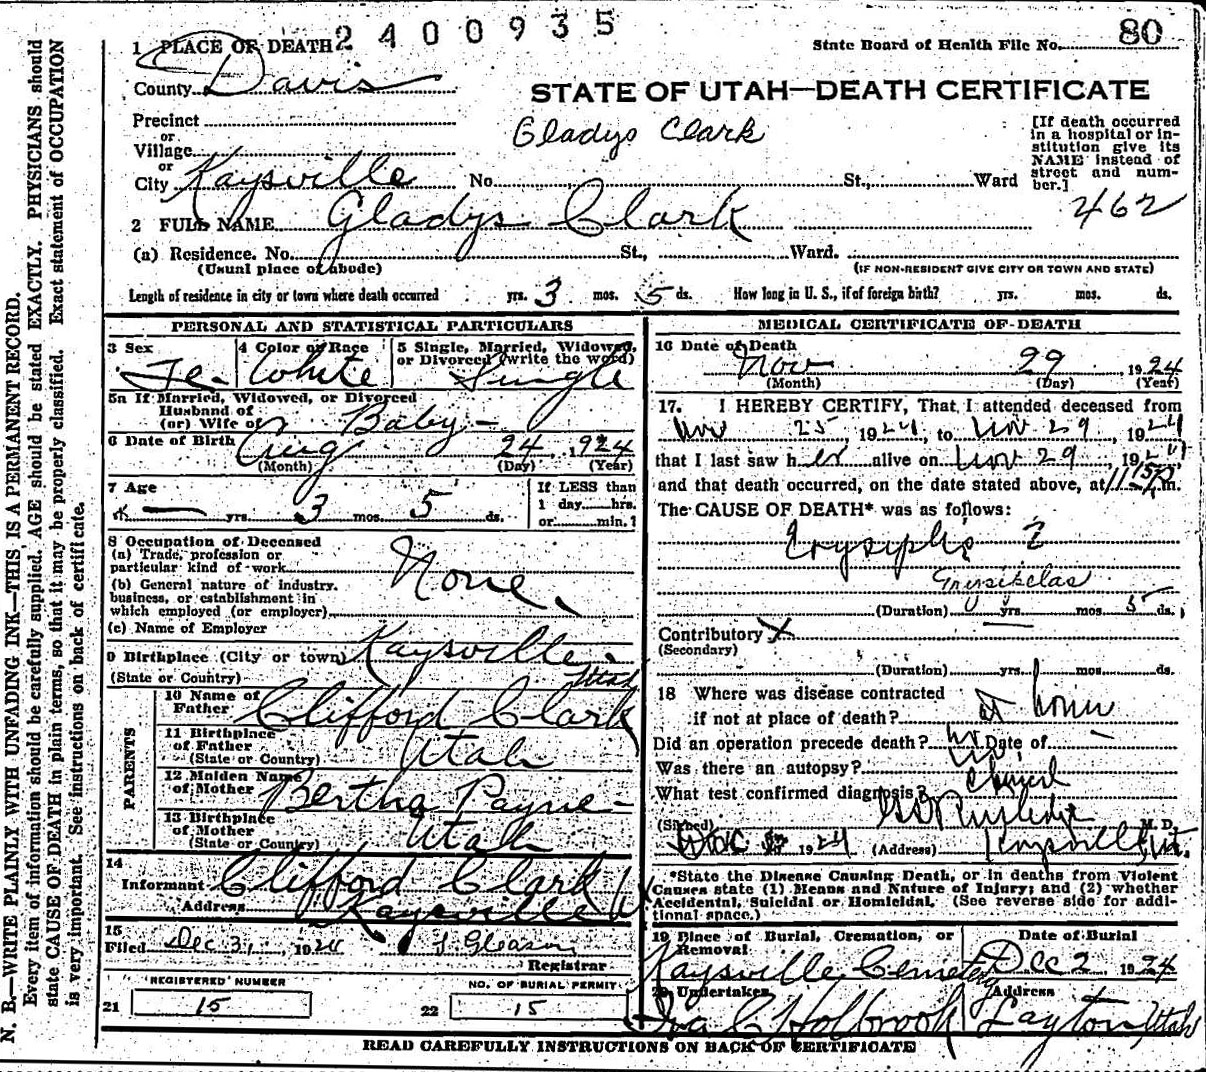 2400935
80
1 PLACE OF DEATH
State Board of Health File No.
County Davis
STATE OF UTAH—DEATH CERTIFICATE
Precinct
Gladys Clark
or
Village
or
City Kaysville No. St., Ward
[If death occurred
in a hospital or in-
stitution give its
NAME instead of
street and num-
ber.]
462
2 FULL NAME Gladys Clark
(a) Residence. No. St., Ward.
(Usual place of abode)
(IF NON-RESIDENT GIVE CITY OR TOWN AND STATE)
Length of residence in city or town where death occurred yrs. 3 mos. 5 ds. How long in U. S., if of foreign birth? yrs. mos. ds.
PERSONAL AND STATISTICAL PARTICULARS
3 Sex
Fe-
4 Color or Race
White
5 Single, Married, Widowed,
or Divorced (write the word)
Single
5a If Married, Widowed, or Divorced
Husband of
(or) Wife of Baby -
6 Date of Birth Aug 24, 1924
(Month) (Day) (Year)
7 Age
— yrs. 3 mos. 5 ds.
If LESS than
1 day hrs.
or min.?
8 Occupation of Deceased
(a) Trade, profession or
particular kind of work
None.
(b) General nature of industry,
business, or establishment in
which employed (or employer)
(c) Name of Employer
9 Birthplace (City or town) Kaysville,
(State or Country) Utah
PARENTS
10 Name of
Father Clifford Clark
11 Birthplace
of Father
(State or Country) Utah
12 Maiden Name
of Mother Bertha Payne -
13 Birthplace
of Mother
(State or Country) Utah
14
Informant Clifford Clark
Address Kaysville U
15
Filed Dec 3, 1924 J. Gleason
Registrar
REGISTERED NUMBER
21 15
NO. OF BURIAL PERMIT
22 15
MEDICAL CERTIFICATE OF DEATH
16 Date of Death
Nov 29 1924
(Month) (Day) (Year)
17. I HEREBY CERTIFY, That I attended deceased from
Nov 25, 1924, to Nov 29, 1924
that I last saw her alive on Nov 29, 1924
and that death occurred, on the date stated above, at m.
The CAUSE OF DEATH* was as follows:
?
(Duration) yrs. mos. 5 ds.
Contributory X
(Secondary)
(Duration) yrs. mos. ds.
18 Where was disease contracted
if not at place of death? at home
Did an operation precede death? no Date of —
Was there an autopsy? no
What test confirmed diagnosis?
(Signed) M. D.
1924 (Address) Kaysville Ut.
*State the Disease Causing Death, or in deaths from Violent
Causes state (1) Means and Nature of Injury; and (2) whether
Accidental, Suicidal or Homicidal. (See reverse side for addi-
tional space.)
19 Place of Burial, Cremation, or
Removal
Kaysville Cemetery
Date of Burial
Dec 2, 1924
20 Undertaker
Ira C Holbrook
Address
Layton, Utah
READ CAREFULLY INSTRUCTIONS ON BACK OF CERTIFICATE
N. B.—WRITE PLAINLY WITH UNFADING INK—THIS IS A PERMANENT RECORD.
Every item of information should be carefully supplied. AGE should be stated EXACTLY. PHYSICIANS should
state CAUSE OF DEATH in plain terms, so that it may be properly classified. Exact statement of OCCUPATION
is very important. See instructions on back of certificate.